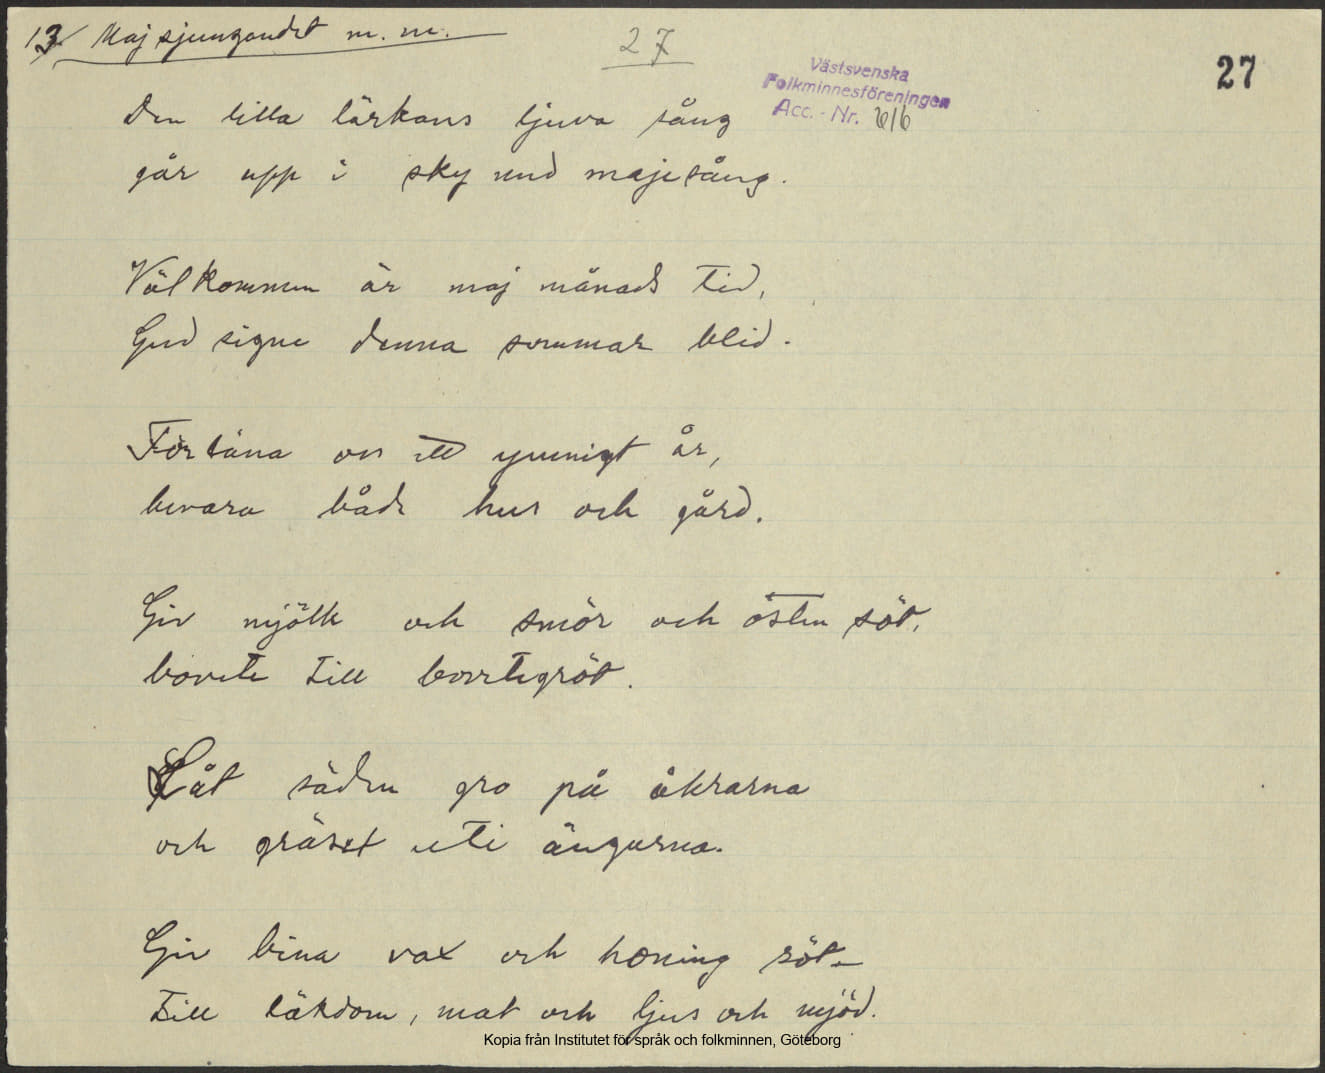 13. Majsjungandet m. m.
27
27
Västsvenska
Folkminnesföreningen
Acc. - Nr. 616
Den lilla lärkans ljuva sång
går upp i sky med majesång.
Välkommen är maj månads tid,
Gud signe denna sommar blid.
Förläna oss ett ymnigt år,
bevara både hus och gård.
Giv mjölk och smör och osten söt,
bovete till bovetegröt.
Låt säden gro på åkrarna
och gräset uti ängarna.
Giv bina vax och honing söt
till läkdom, mat och ljus och mjöd.
Kopia från Institutet för språk och folkminnen, Göteborg